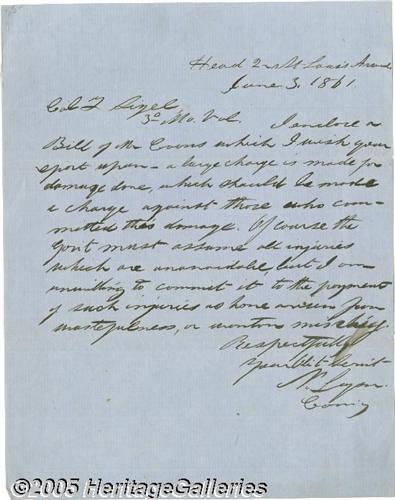 Head Qrs St Louis Arsnl
June 3, 1861.
Col F Sigel
3d Mo. Vol. I enclose a
Bill of Mr Coons which I wish your
report upon - a large charge is made for
damage done, which should be made
a charge against those who com-
mitted this damage. Of course the
Govt must assume all injuries
which are unavoidable, but I am
unwilling to commit it to the payment
of such injuries as have arisen from
wastefulness, or wanton mischief.
Respectfully
Your Obt Servt
N. Lyon
Comg
©2005 HeritageGalleries